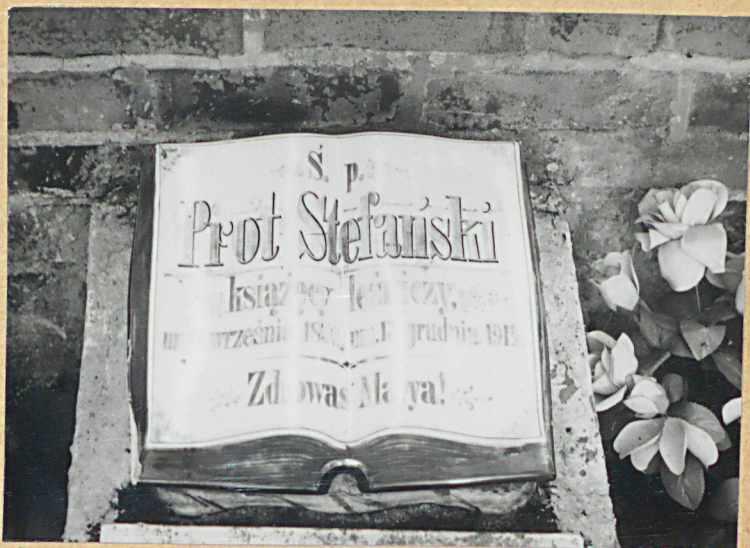 Ś. p.
Prot Stefański
książęcy leśniczy,
wrześnie grudnia
Zdrowaś Marya!